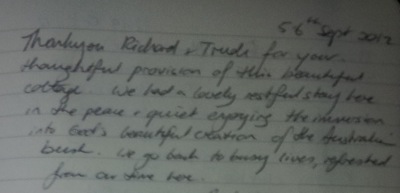 5 6th Sept 2012
Thankyou Richard & Trudi for your
thoughtful provision of this beautiful
cottage. We had a lovely restful stay here
in the peace & quiet enjoying the immersion
into God's beautiful creation of the Australian
bush. We go back to busy lives, refreshed
from our time here.